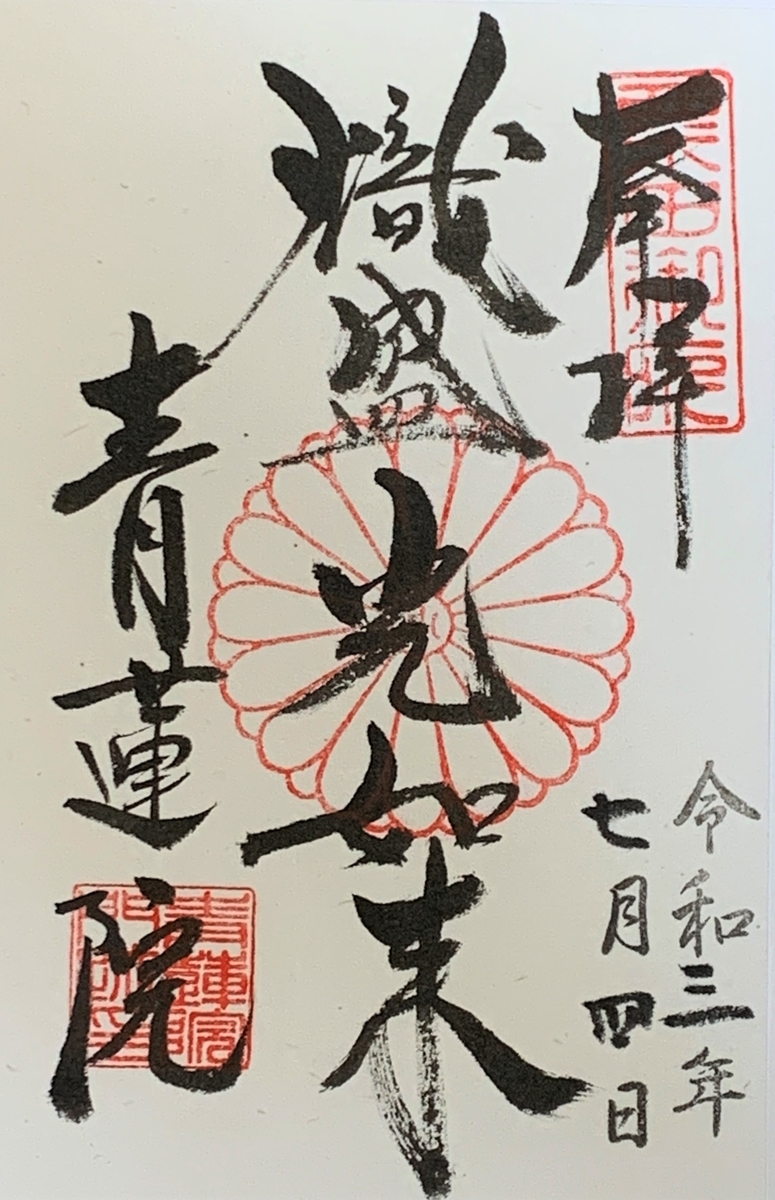 奉拝
令和三年
七月四日
熾盛光如来
青蓮院